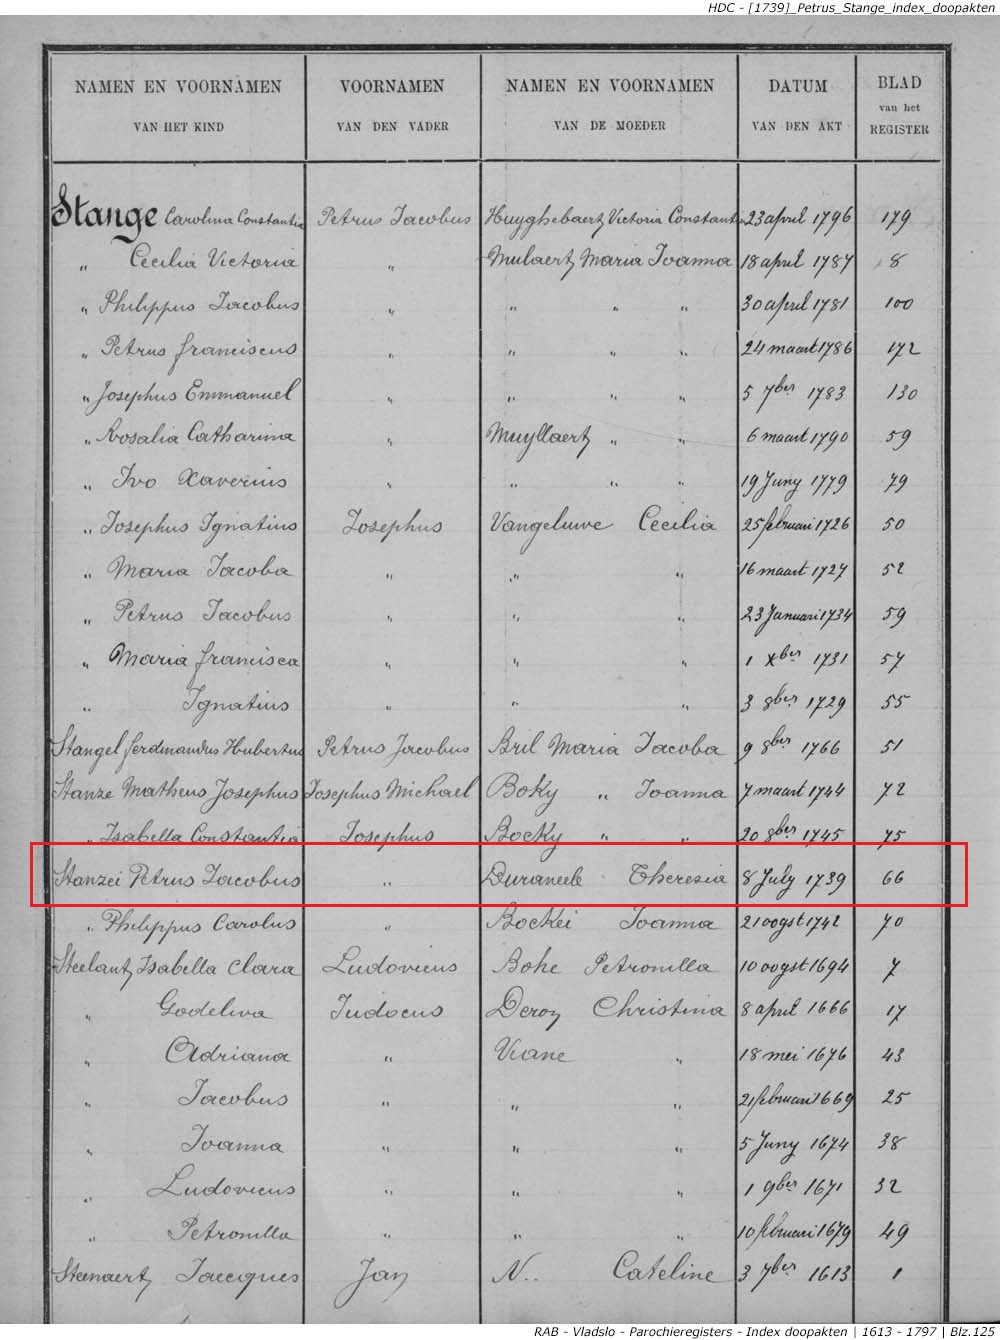 HDC - [1739]_Petrus_Stange_index_doopakten
NAMEN EN VOORNAMEN VOORNAMEN NAMEN EN VOORNAMEN DATUM BLAD
van het
VAN HET KIND VAN DEN VADER VAN DE MOEDER VAN DEN AKT REGISTER
Stange Carolina Constantia Petrus Jacobus Huyghebaert Victoria Constantia 23 april 1796 179
" Cecilia Victoria " Mulaert Maria Joanna 18 april 1787 8
" Philippus Jacobus " " " " 30 april 1781 100
" Petrus franciscus " " " " 24 maart 1786 172
" Josephus Emmanuel " " " " 5 7ber 1783 130
" Rosalia Catharina " Muyllaert " " 6 maart 1790 59
" Ivo Xaverius " " " " 19 Juny 1779 79
" Josephus Ignatius Josephus Vangeluwe Cecilia 25 februari 1726 50
" Maria Jacoba " " " 16 maart 1727 52
" Petrus Jacobus " " " 23 Januari 1734 59
" Maria francisca " " " 1 xber 1731 57
" Ignatius " " " 3 8ber 1729 55
Stangel ferdinandus Hubertus Petrus Jacobus Bril Maria Jacoba 9 8ber 1766 51
Stanze Matheus Josephus Josephus Michael Boky " Joanna 7 maart 1744 72
" Isabella Constantia Josephus Bocky " " 20 8ber 1745 75
Stanzei Petrus Jacobus " Theresia 8 July 1739 66
" Philippus Carolus " Bockei Joanna 21 oogst 1742 70
Steelant Isabella Clara Ludovicus Bohe Petronilla 10 oogst 1694 7
" Godeliva Judocus Deroy Christina 8 april 1666 17
" Adriana " Viane " 18 mei 1676 43
" Jacobus " " " 21 februari 1669 25
" Joanna " " " 5 Juny 1674 38
" Ludovicus " " " 1 9ber 1671 32
" Petronilla " " " 10 februari 1679 49
Steenaert Jaecques Jan N.. Cateline 3 7ber 1613 1
RAB - Vladslo - Parochieregisters - Index doopakten | 1613 - 1797 | Blz.125